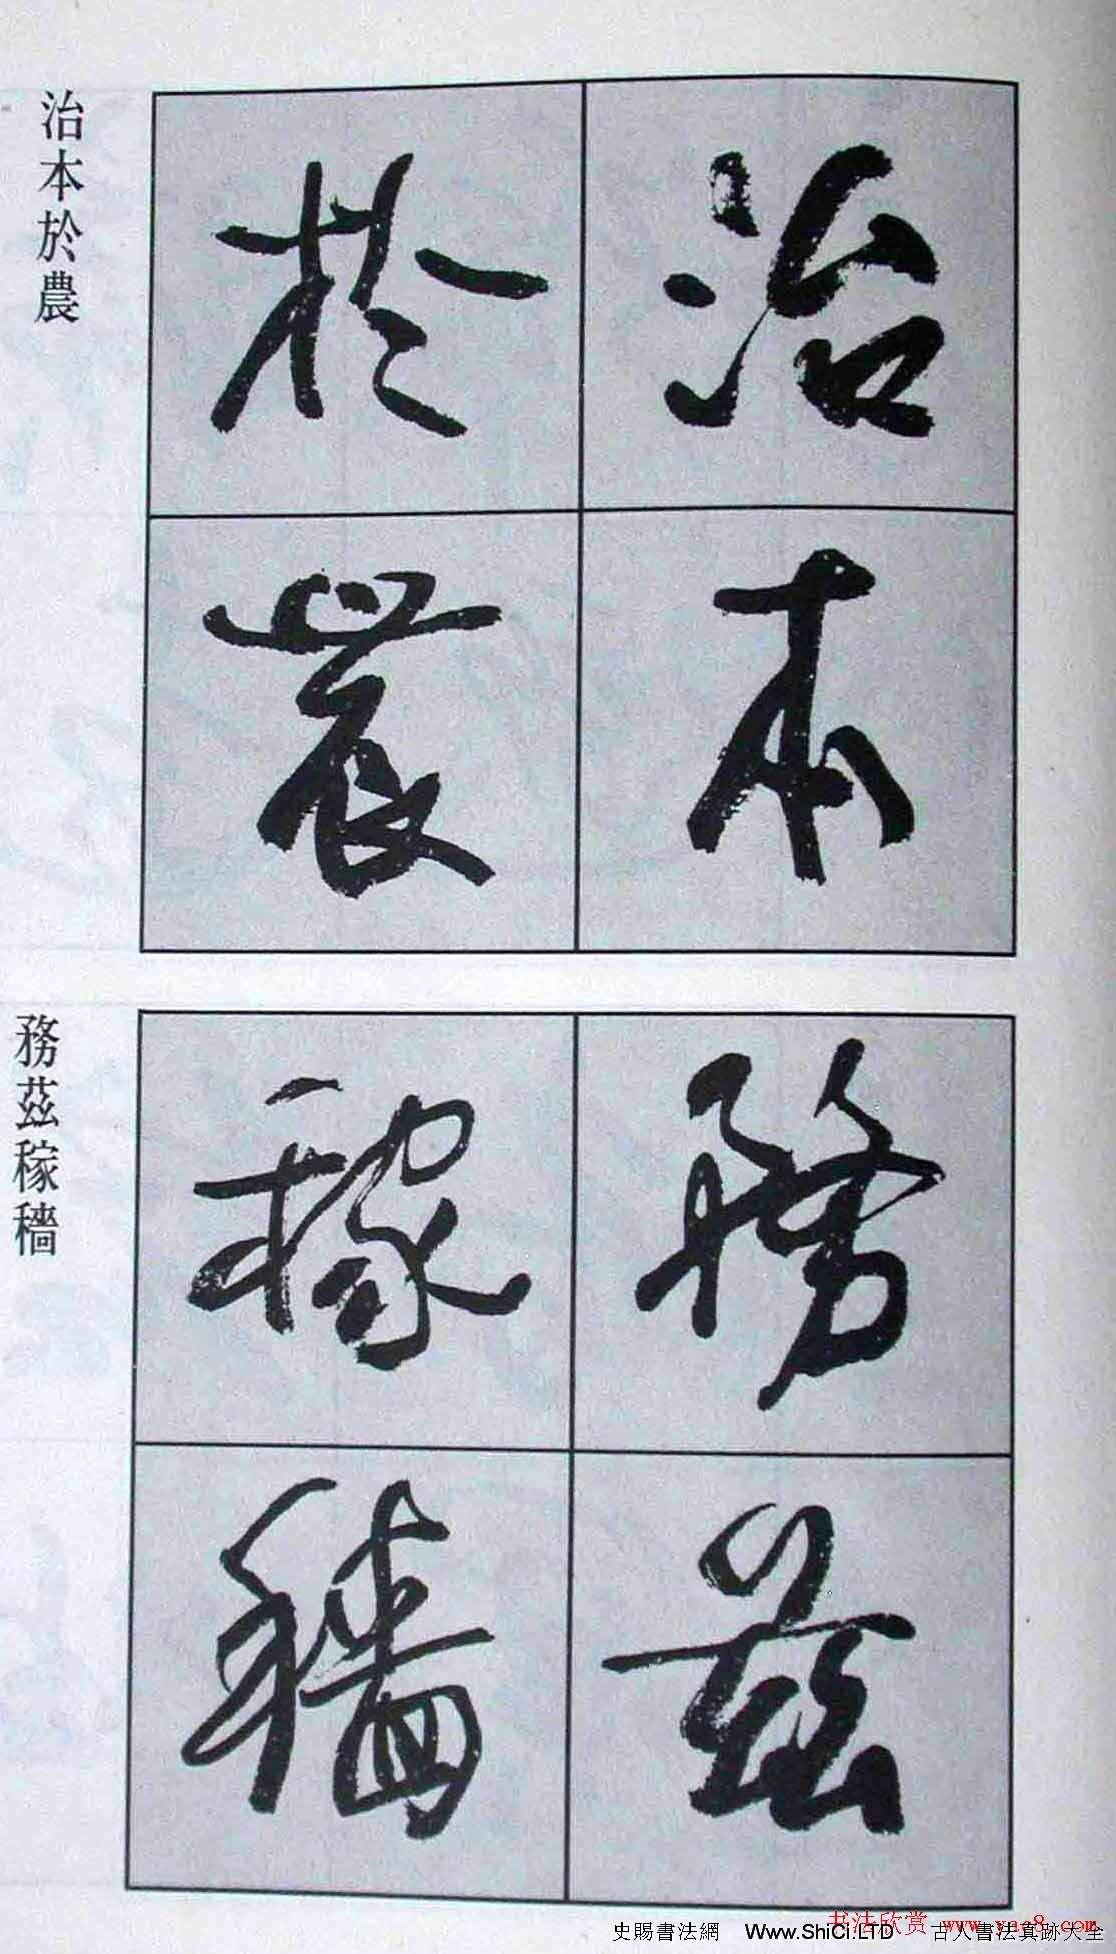 治本於農
治本
於農
務茲稼穡
務茲
稼穡
书法欣赏 www.ya-8.com
史賜書法網 Www.ShiCi.LTD 古人書法真跡大全